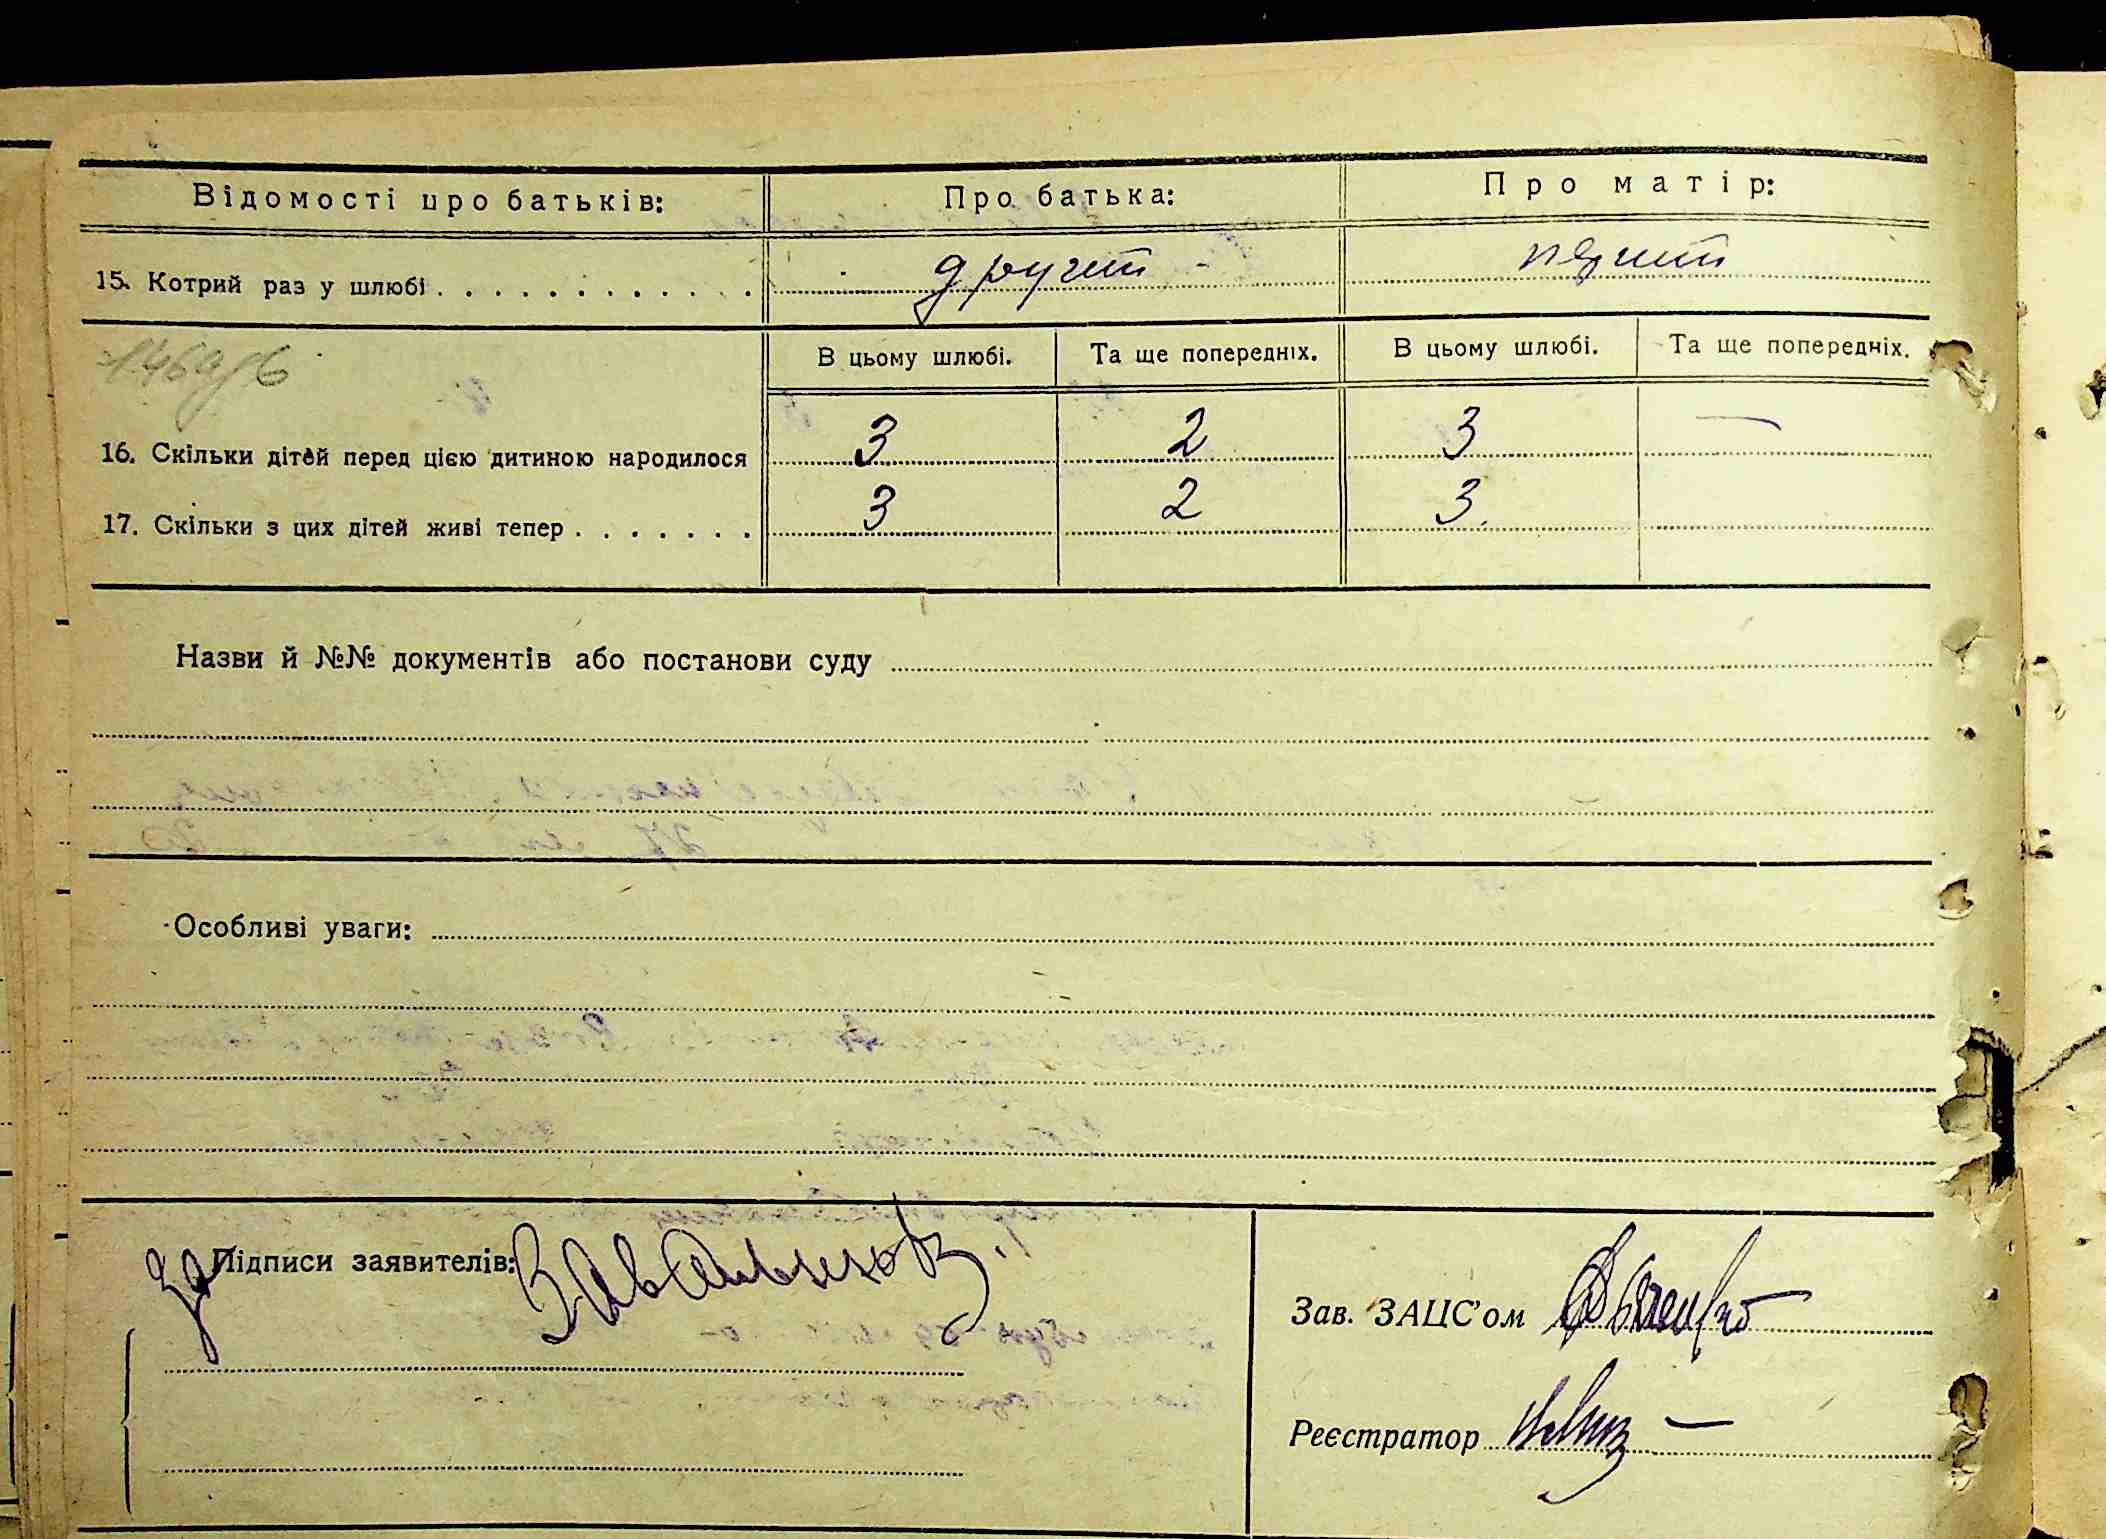 Відомості про батьків: Про батька: Про матір:
15. Котрий раз у шлюбі другий - перший
В цьому шлюбі. Та ще попередніх. В цьому шлюбі. Та ще попередніх.
16. Скільки дітей перед цією дитиною народилося 3 2 3 —
17. Скільки з цих дітей живі тепер 3 2 3
Назви й №№ документів або постанови суду
Особливі уваги:
за Підписи заявителів:
Зав. ЗАЦС'ом
Реєстратор